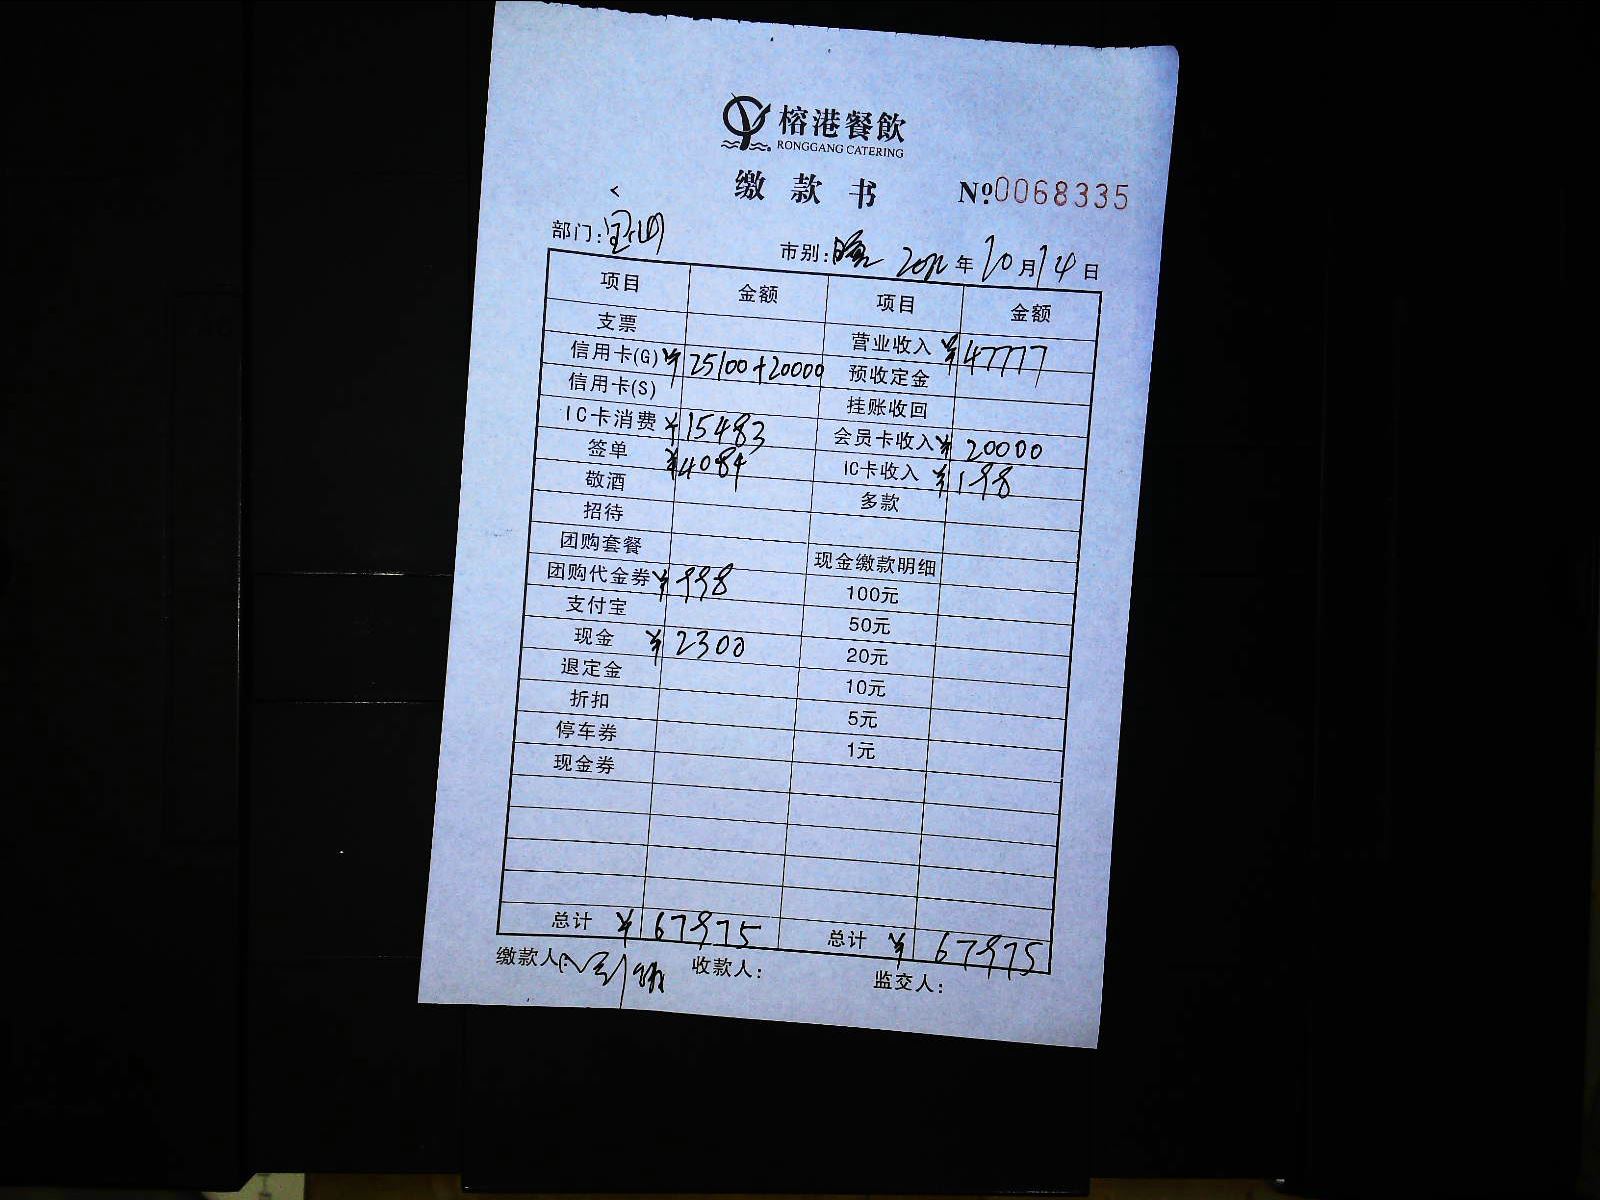 榕港餐飲
RONGGANG CATERING
缴款书 №0068335
部门:宝山 市别:晚 2012年10月14日
项目 金额 项目 金额
支票 营业收入 ¥47777
信用卡(G) ¥25100+20000 预收定金
信用卡(S) 挂账收回
IC卡消费 ¥15483 会员卡收入 ¥20000
签单 ¥4094 IC卡收入 ¥198
敬酒 多款
招待
团购套餐 现金缴款明细
团购代金券 ¥998 100元
支付宝 50元
现金 ¥2300 20元
退定金 10元
折扣 5元
停车券 1元
现金券
总计 ¥67975 总计 ¥67975
缴款人: 收款人: 监交人: